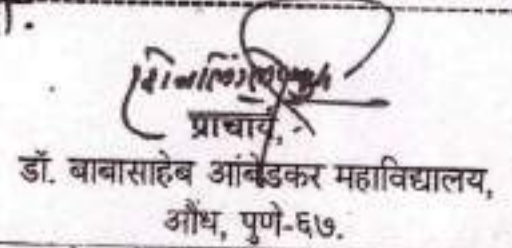 प्राचार्य,
डॉ. बाबासाहेब आंबेडकर महाविद्यालय,
औंध, पुणे-६७.